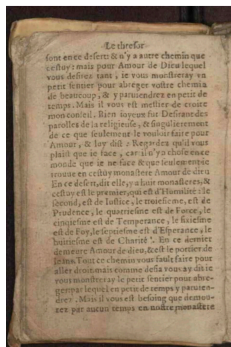 Le thresor
sont en ce desert: & n'y a autre chemin que
cestuy: mais pour Amour de Dieu lequel
vous desirez tant, ie vous monstreray vn
petit sentier pour abreger vostre chemin
de beaucoup, & y paruiendrez en petit de
temps. Mais il vous est mestier de croire
mon conseil. Bien ioyeux fut Desirant des
parolles de la religieuse, & singulierement
de ce que seulement le vouloit faire pour
Amour, & luy dist: Regardez qu'il vous
plaist que ie face, car il n'ya chose en ce
monde que ie ne face & que seulement ie
trouue en cestuy monastere Amour de dieu
En ce desert, dit elle, y a huit monasteres, &
cestuy est le premier, qui est d'Humilité: le
second, est de Iustice, le troisieme, est de
Prudence, le quatriesme est de Force, le
cinquiesme est de Temperance, le sixiesme
est de Foy, le septiesme est d'Esperance, le
huitiesme est de Charité. En ce dernier
demeure Amour de dieu, & est le portier de
Iesus. Tout ce chemin vous fault faire pour
aller droit: mais comme desia vous ay dit ie
vous monstreray le petit sentier pour abre-
ger par lequel en petit de temps y paruien-
drez. Mais il vous est besoing que demou-
rez par aucun temps en nostre monastere